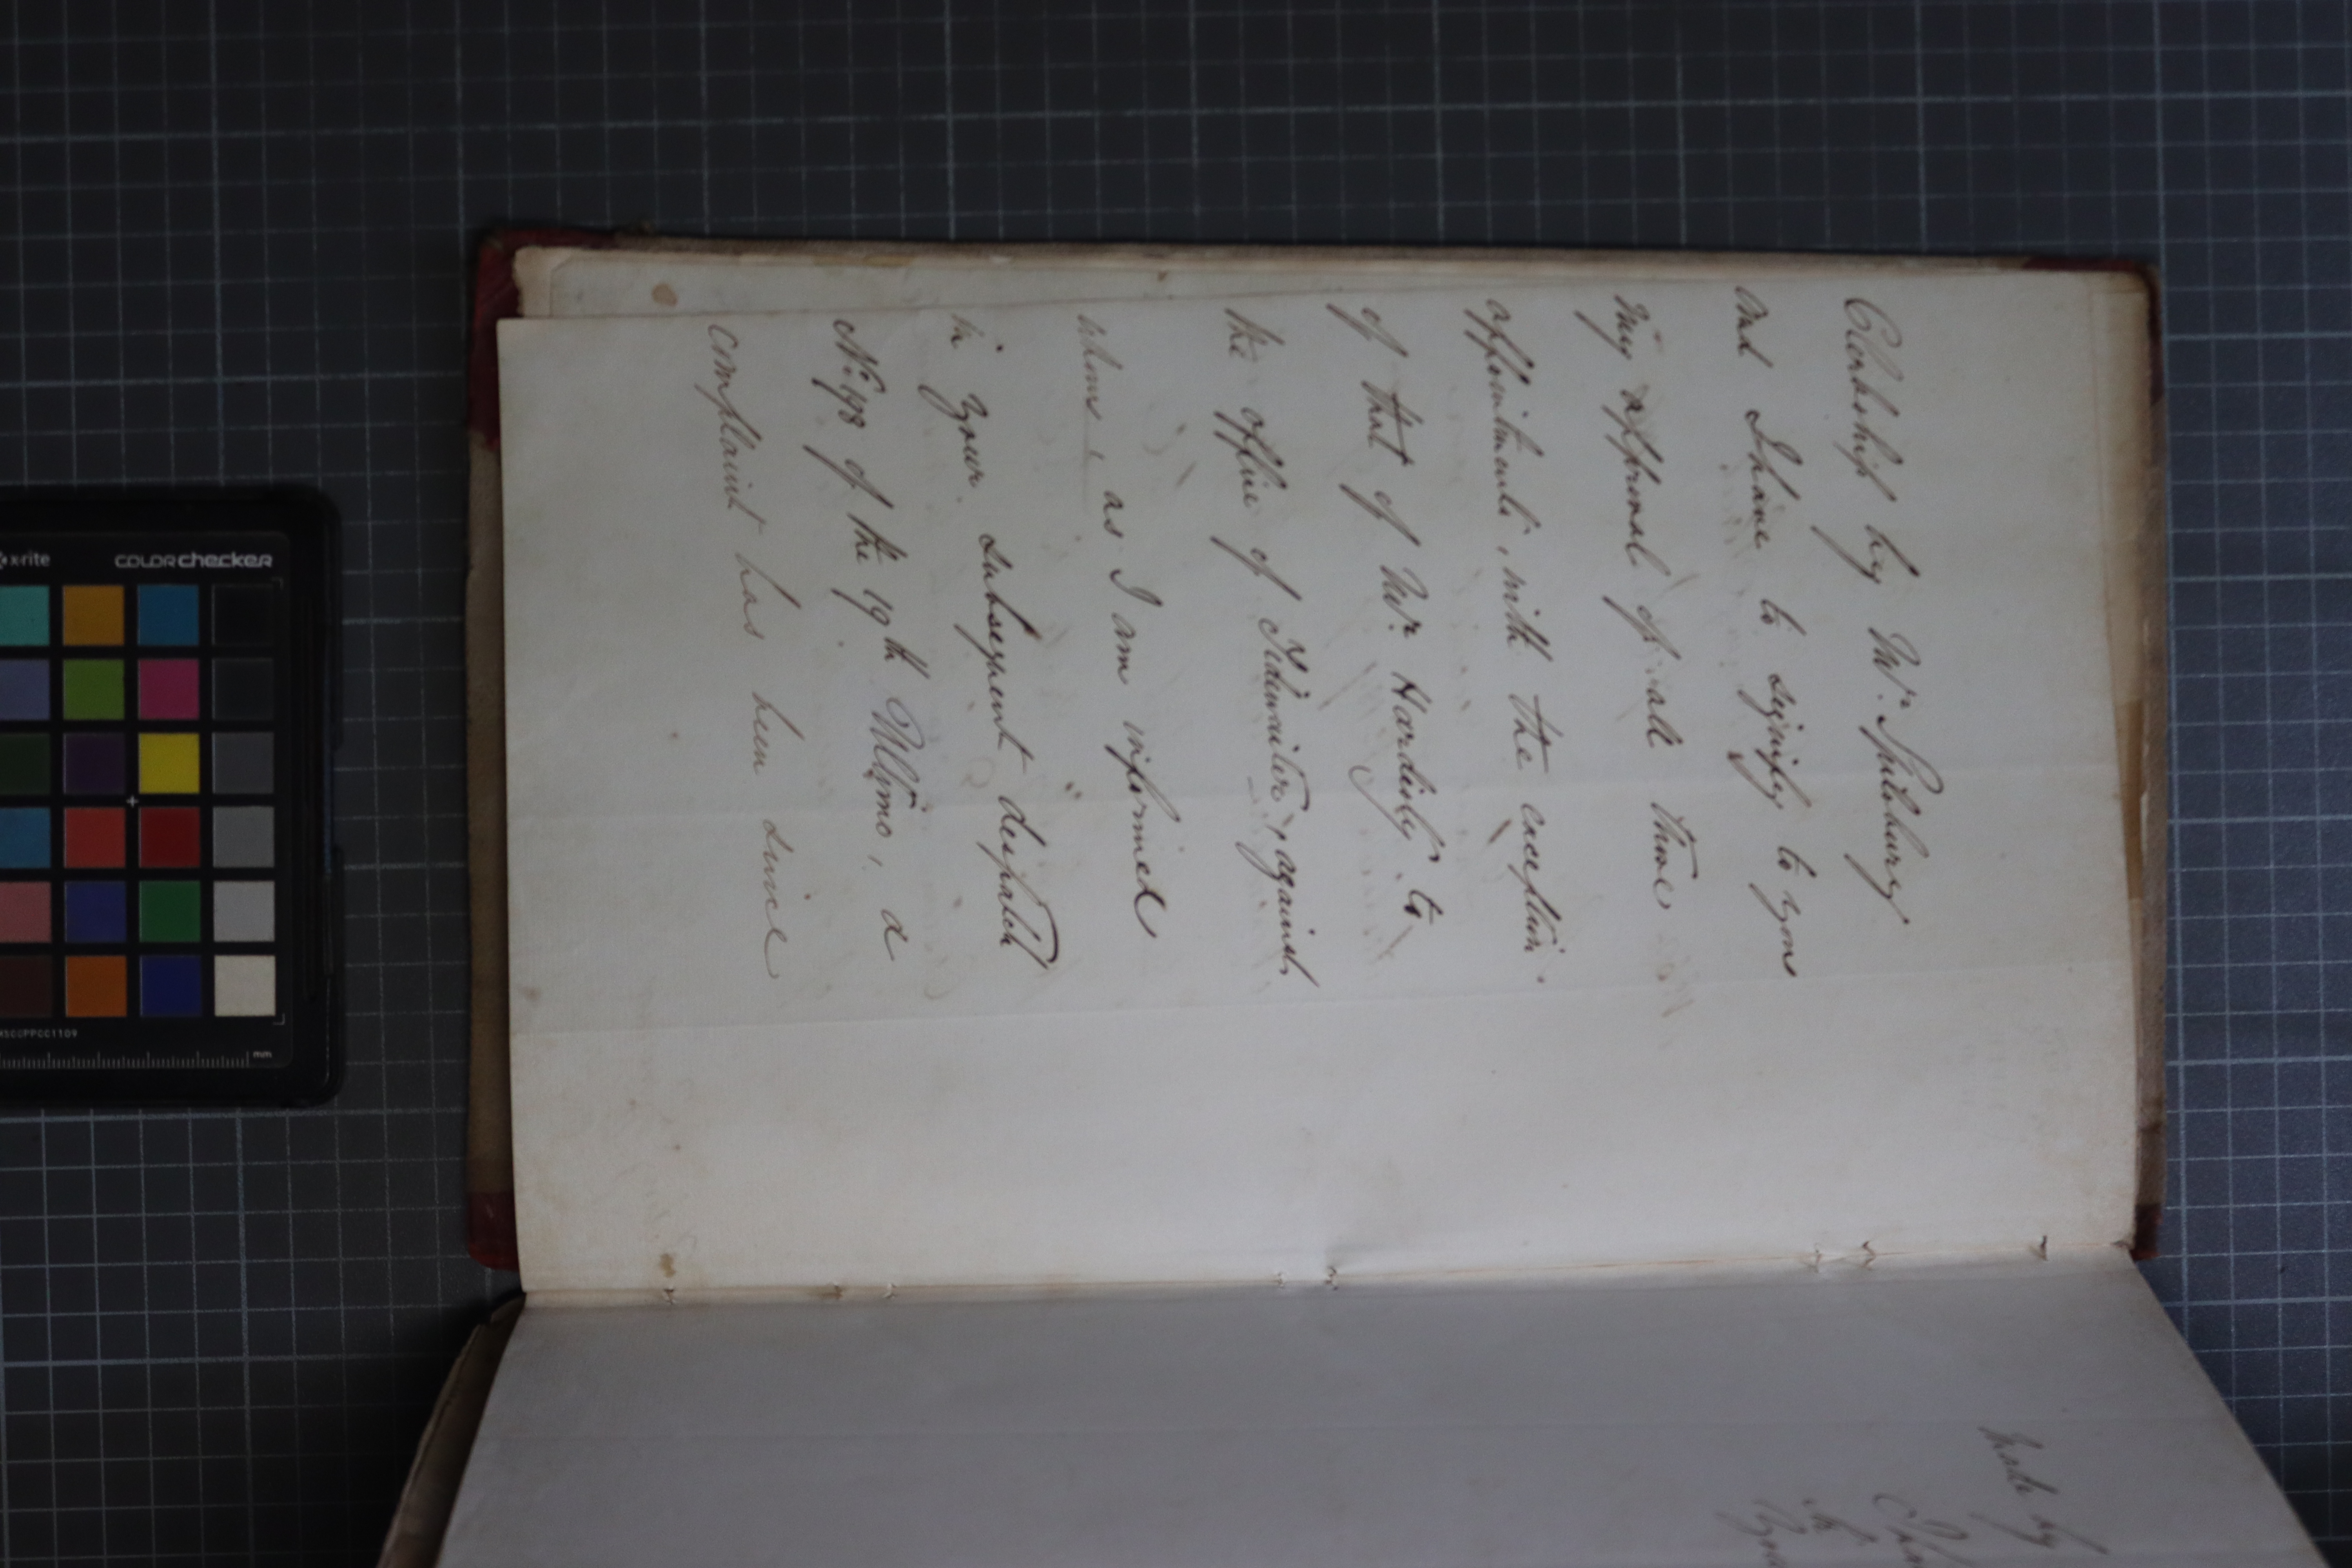 Clerkship by Mr. Spilsbury
and I have to signify to you
my approval of all these
appointments, with the exception
of that of Mr. Hardisty to
the office of Tidewaiter, against
whom, as I am informed
in your subsequent despatch
No. 198 of the 19th Ultimo, a
complaint has been since
made by
x-rite
COLORchecker
mm